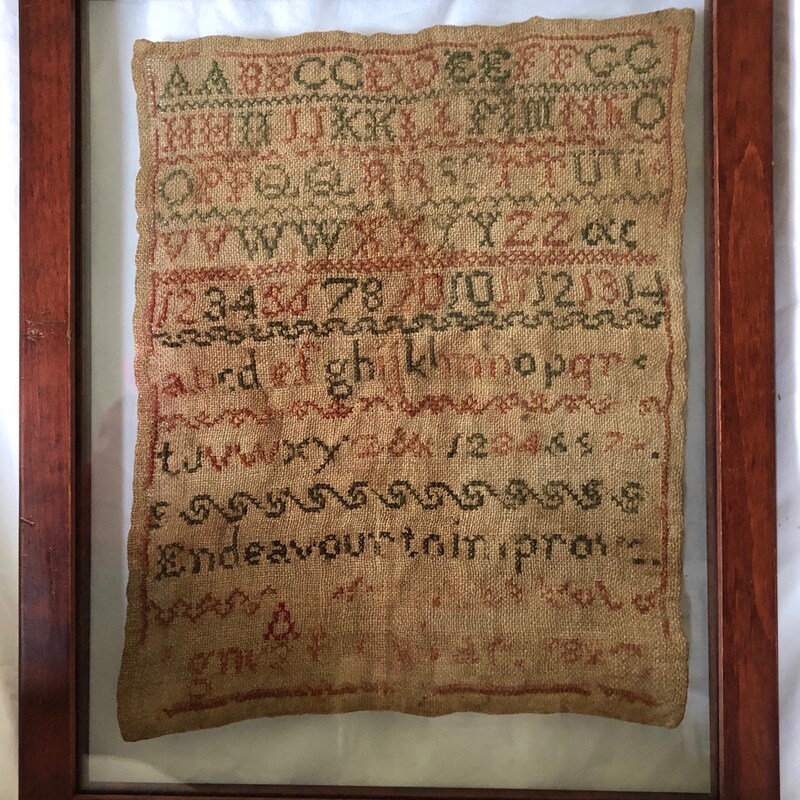 AABBCCDDEEFFGG
HHIIJJKKLLMMNNO
OPPQQRRSSTTUU
VVWWXXYYZZ&c
1234567891011121314
abcdefghijklmnopqrs
tuvwxyz&c 12345678.
Endeavour to improve.